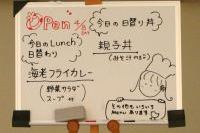 Open
今日のLunch
日替わり
海老フライカレー
(野菜サラダ
スープ 付)
今日の日替り丼
親子丼
(みそ汁付き)
その他もいろいろ
Menu あります